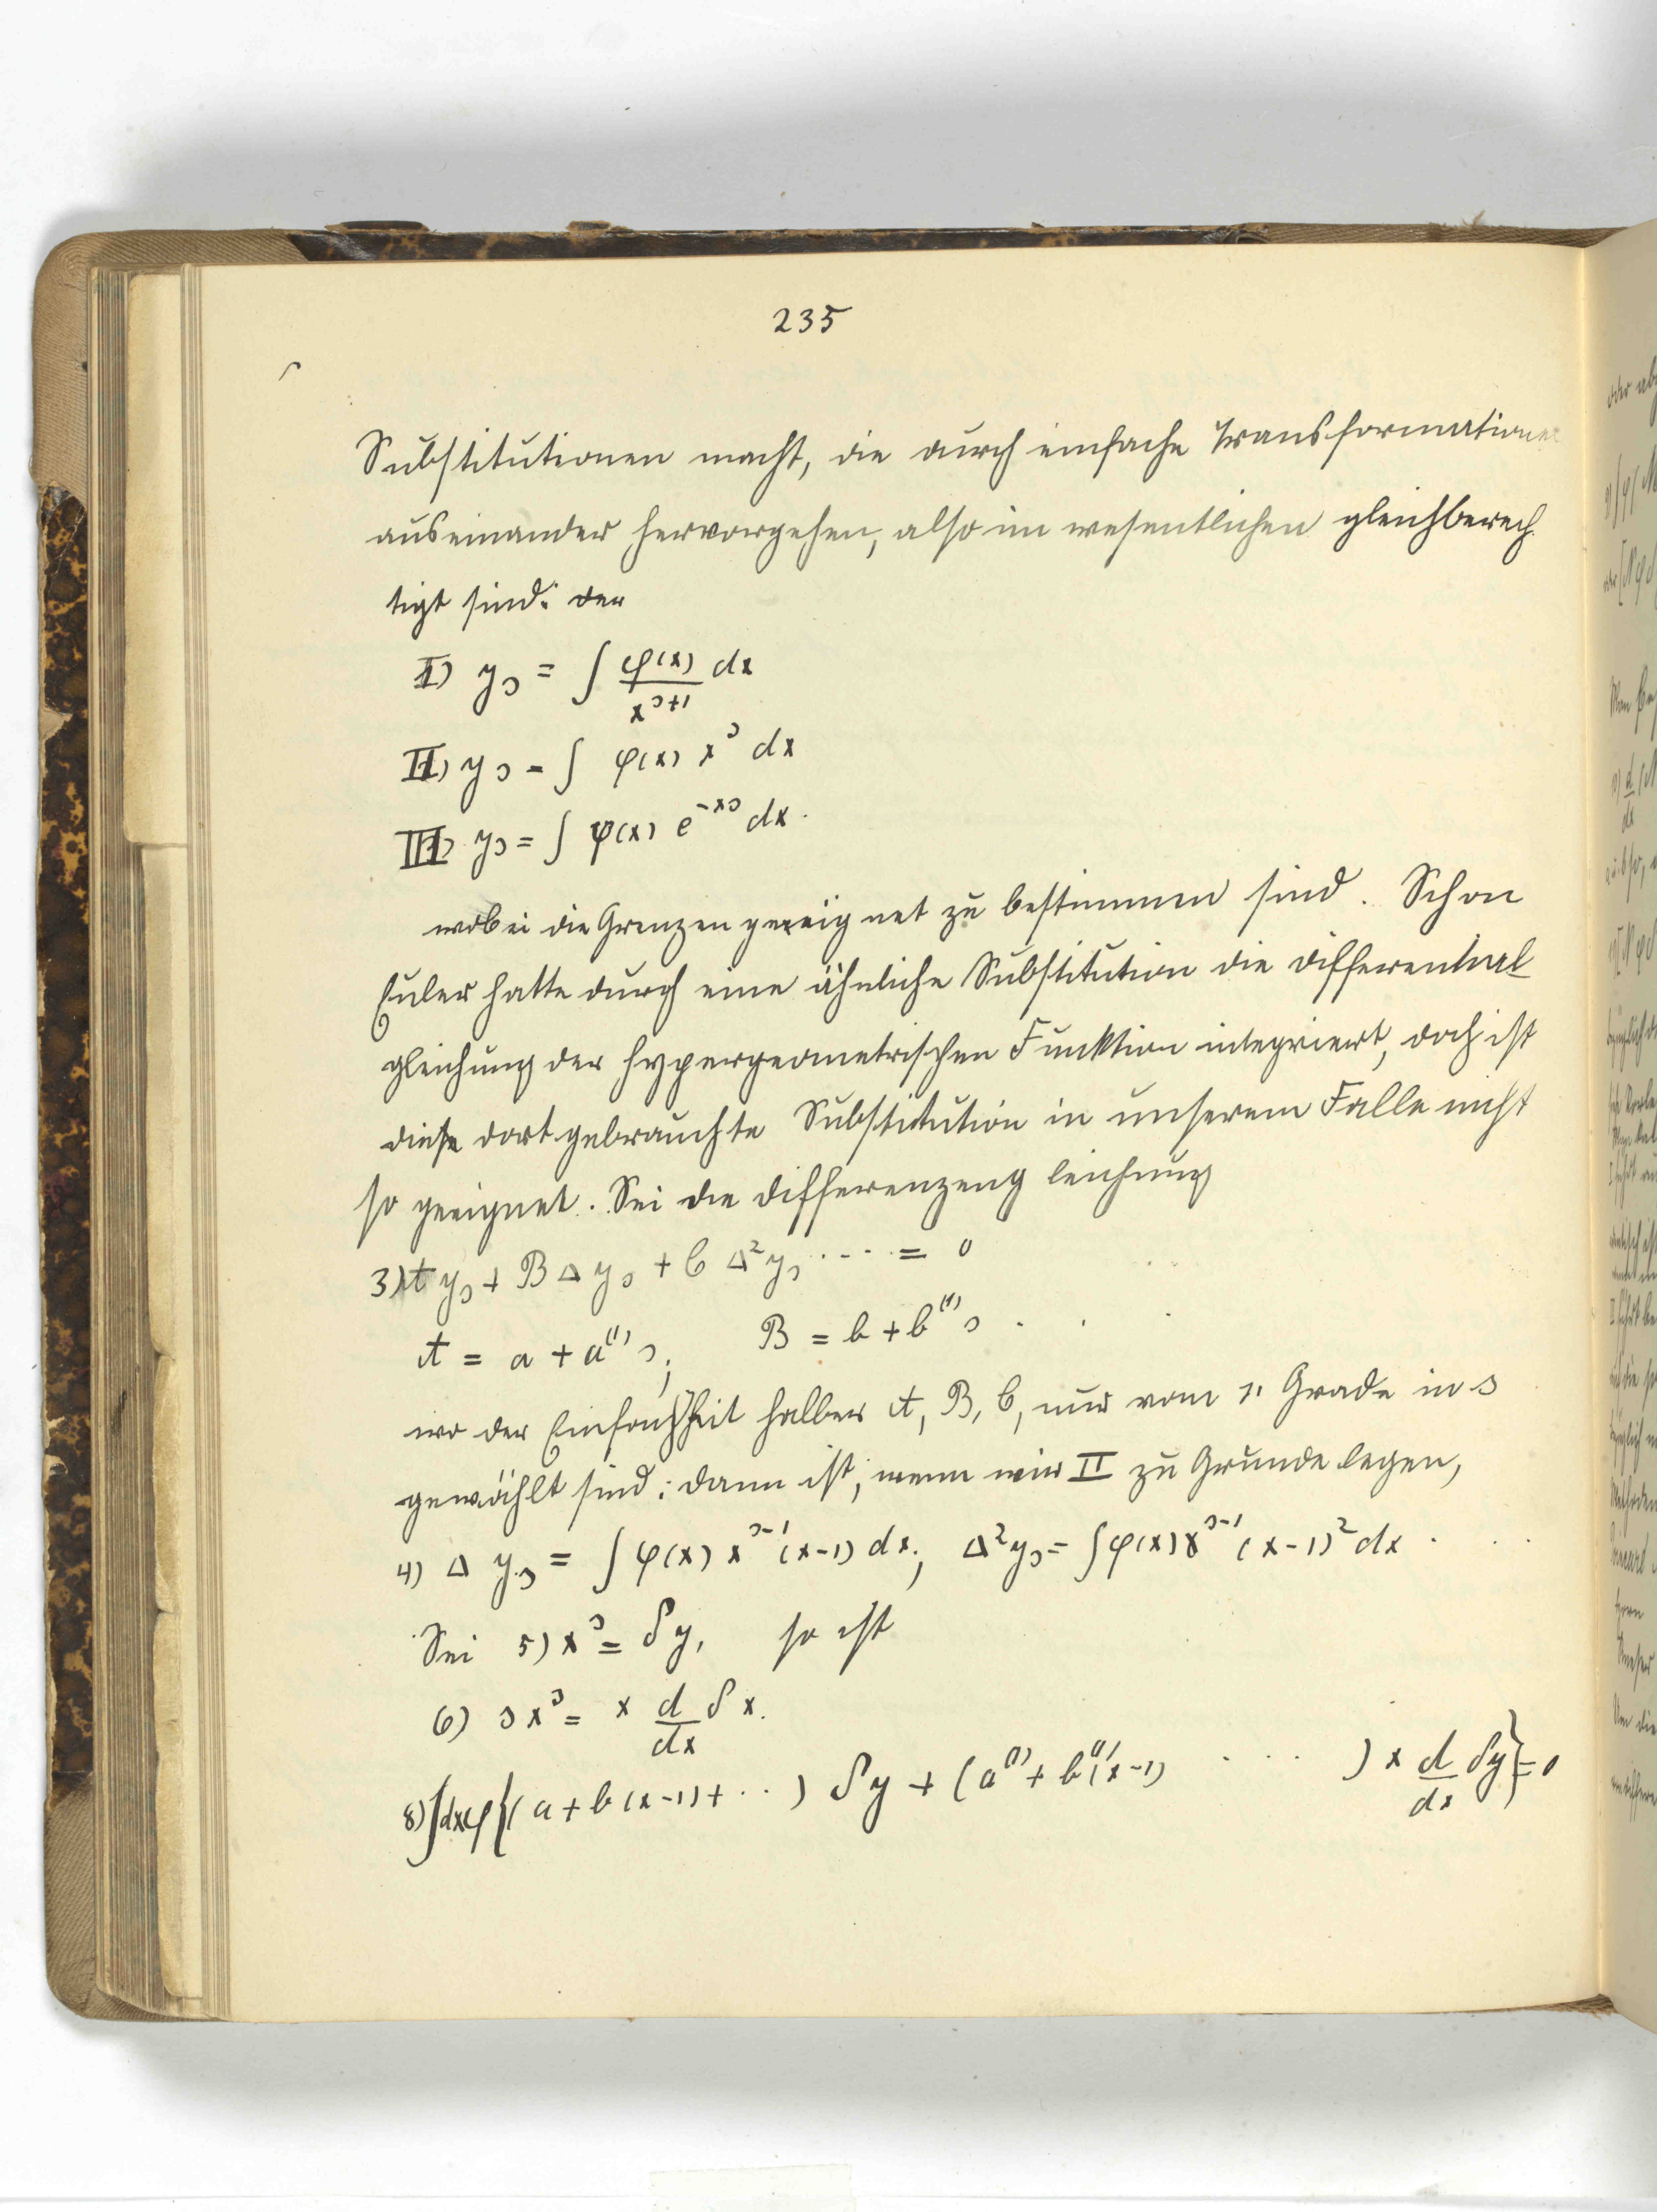 235
Substitutionen macht, die durch einfache Transformationen
auseinander hervorgehen, also im wesentlichen gleichberech
tigt sind: der
I) y_s = ∫ φ(x)/x^{s+1} dx
II) y_s = ∫ φ(x) x^s dx
III) y_s = ∫ φ(x) e^{-xs} dx.
wobei die Grenzen geeignet zu bestimmen sind. Schon
Euler hatte durch eine ähnliche Substitution die Differential
gleichung der hypergeometrischen Funktion integriert, doch ist
diese dort gebrauchte Substitution in unserem Falle nicht
so geeignet. Sei die Differenzengleichung
3) A y_s + B Δ y_s + C Δ² y_s .... = 0
A = a + a^{(1)} s; B = b + b^{(1)} s . .
wo der Einfachheit halber A, B, C, nur vom 1. Grade in s
gewählt sind: dann ist, wenn wir II zu Grunde legen,
4) Δ y_s = ∫ φ(x) x^{s-1} (x-1) dx; Δ² y_s = ∫ φ(x) x^{s-1} (x-1)² dx . . .
Sei 5) x^s = δy, so ist
6) s x^s = x d/dx δ x.
8) ∫ dx φ {( a + b (x-1) + ..) δy + (a^{(1)} + b^{(1)} (x-1) .... ) x d/dx δy} = 0